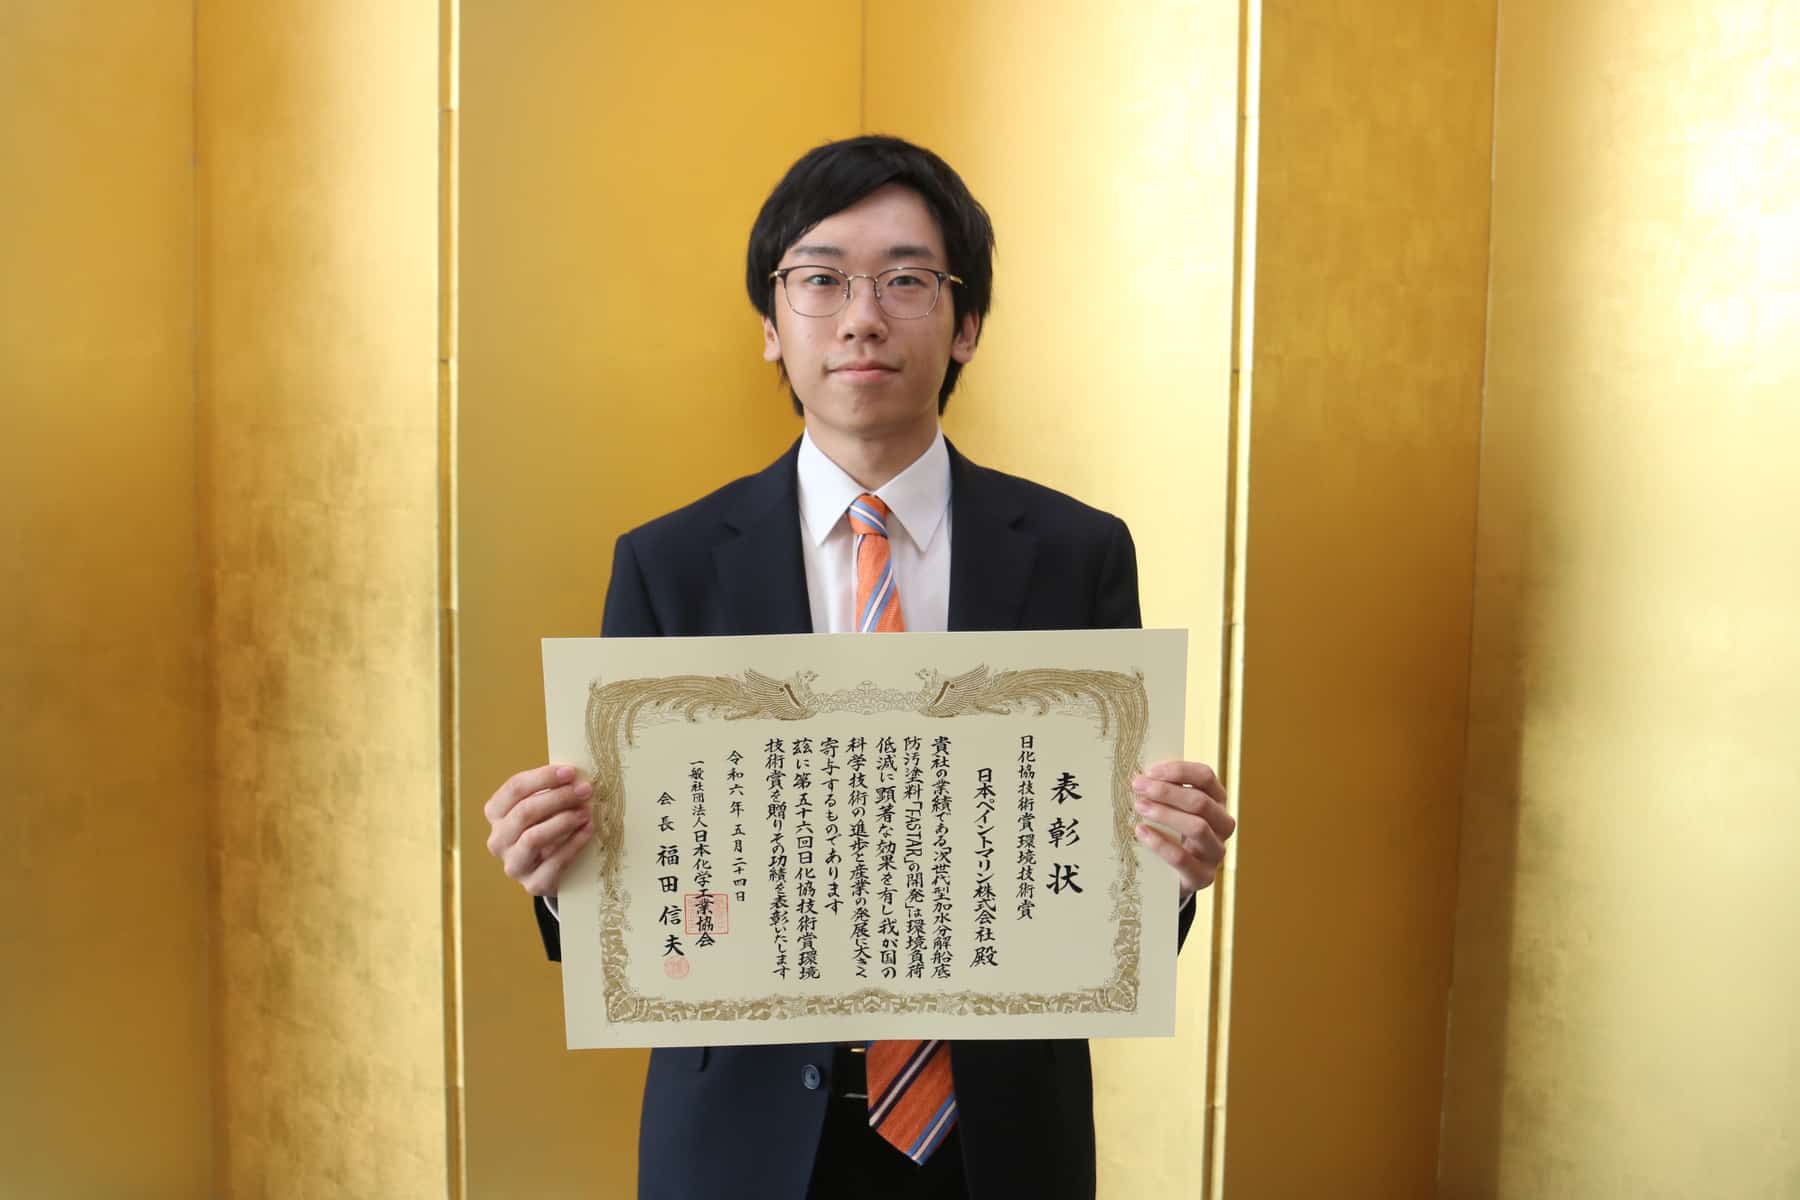 表彰状
日化協技術賞環境技術賞
日本ペイントマリン株式会社 殿
貴社の業績である「次世代型加水分解船底
防汚塗料「FASTAR」の開発」は環境負荷
低減に顕著な効果を有し我が国の
科学技術の進歩と産業の発展に大きく
寄与するものであります
茲に第五十六回日化協技術賞環境
技術賞を贈りその功績を表彰いたします
令和六年五月二十四日
一般社団法人日本化学工業協会
会長 福田信夫